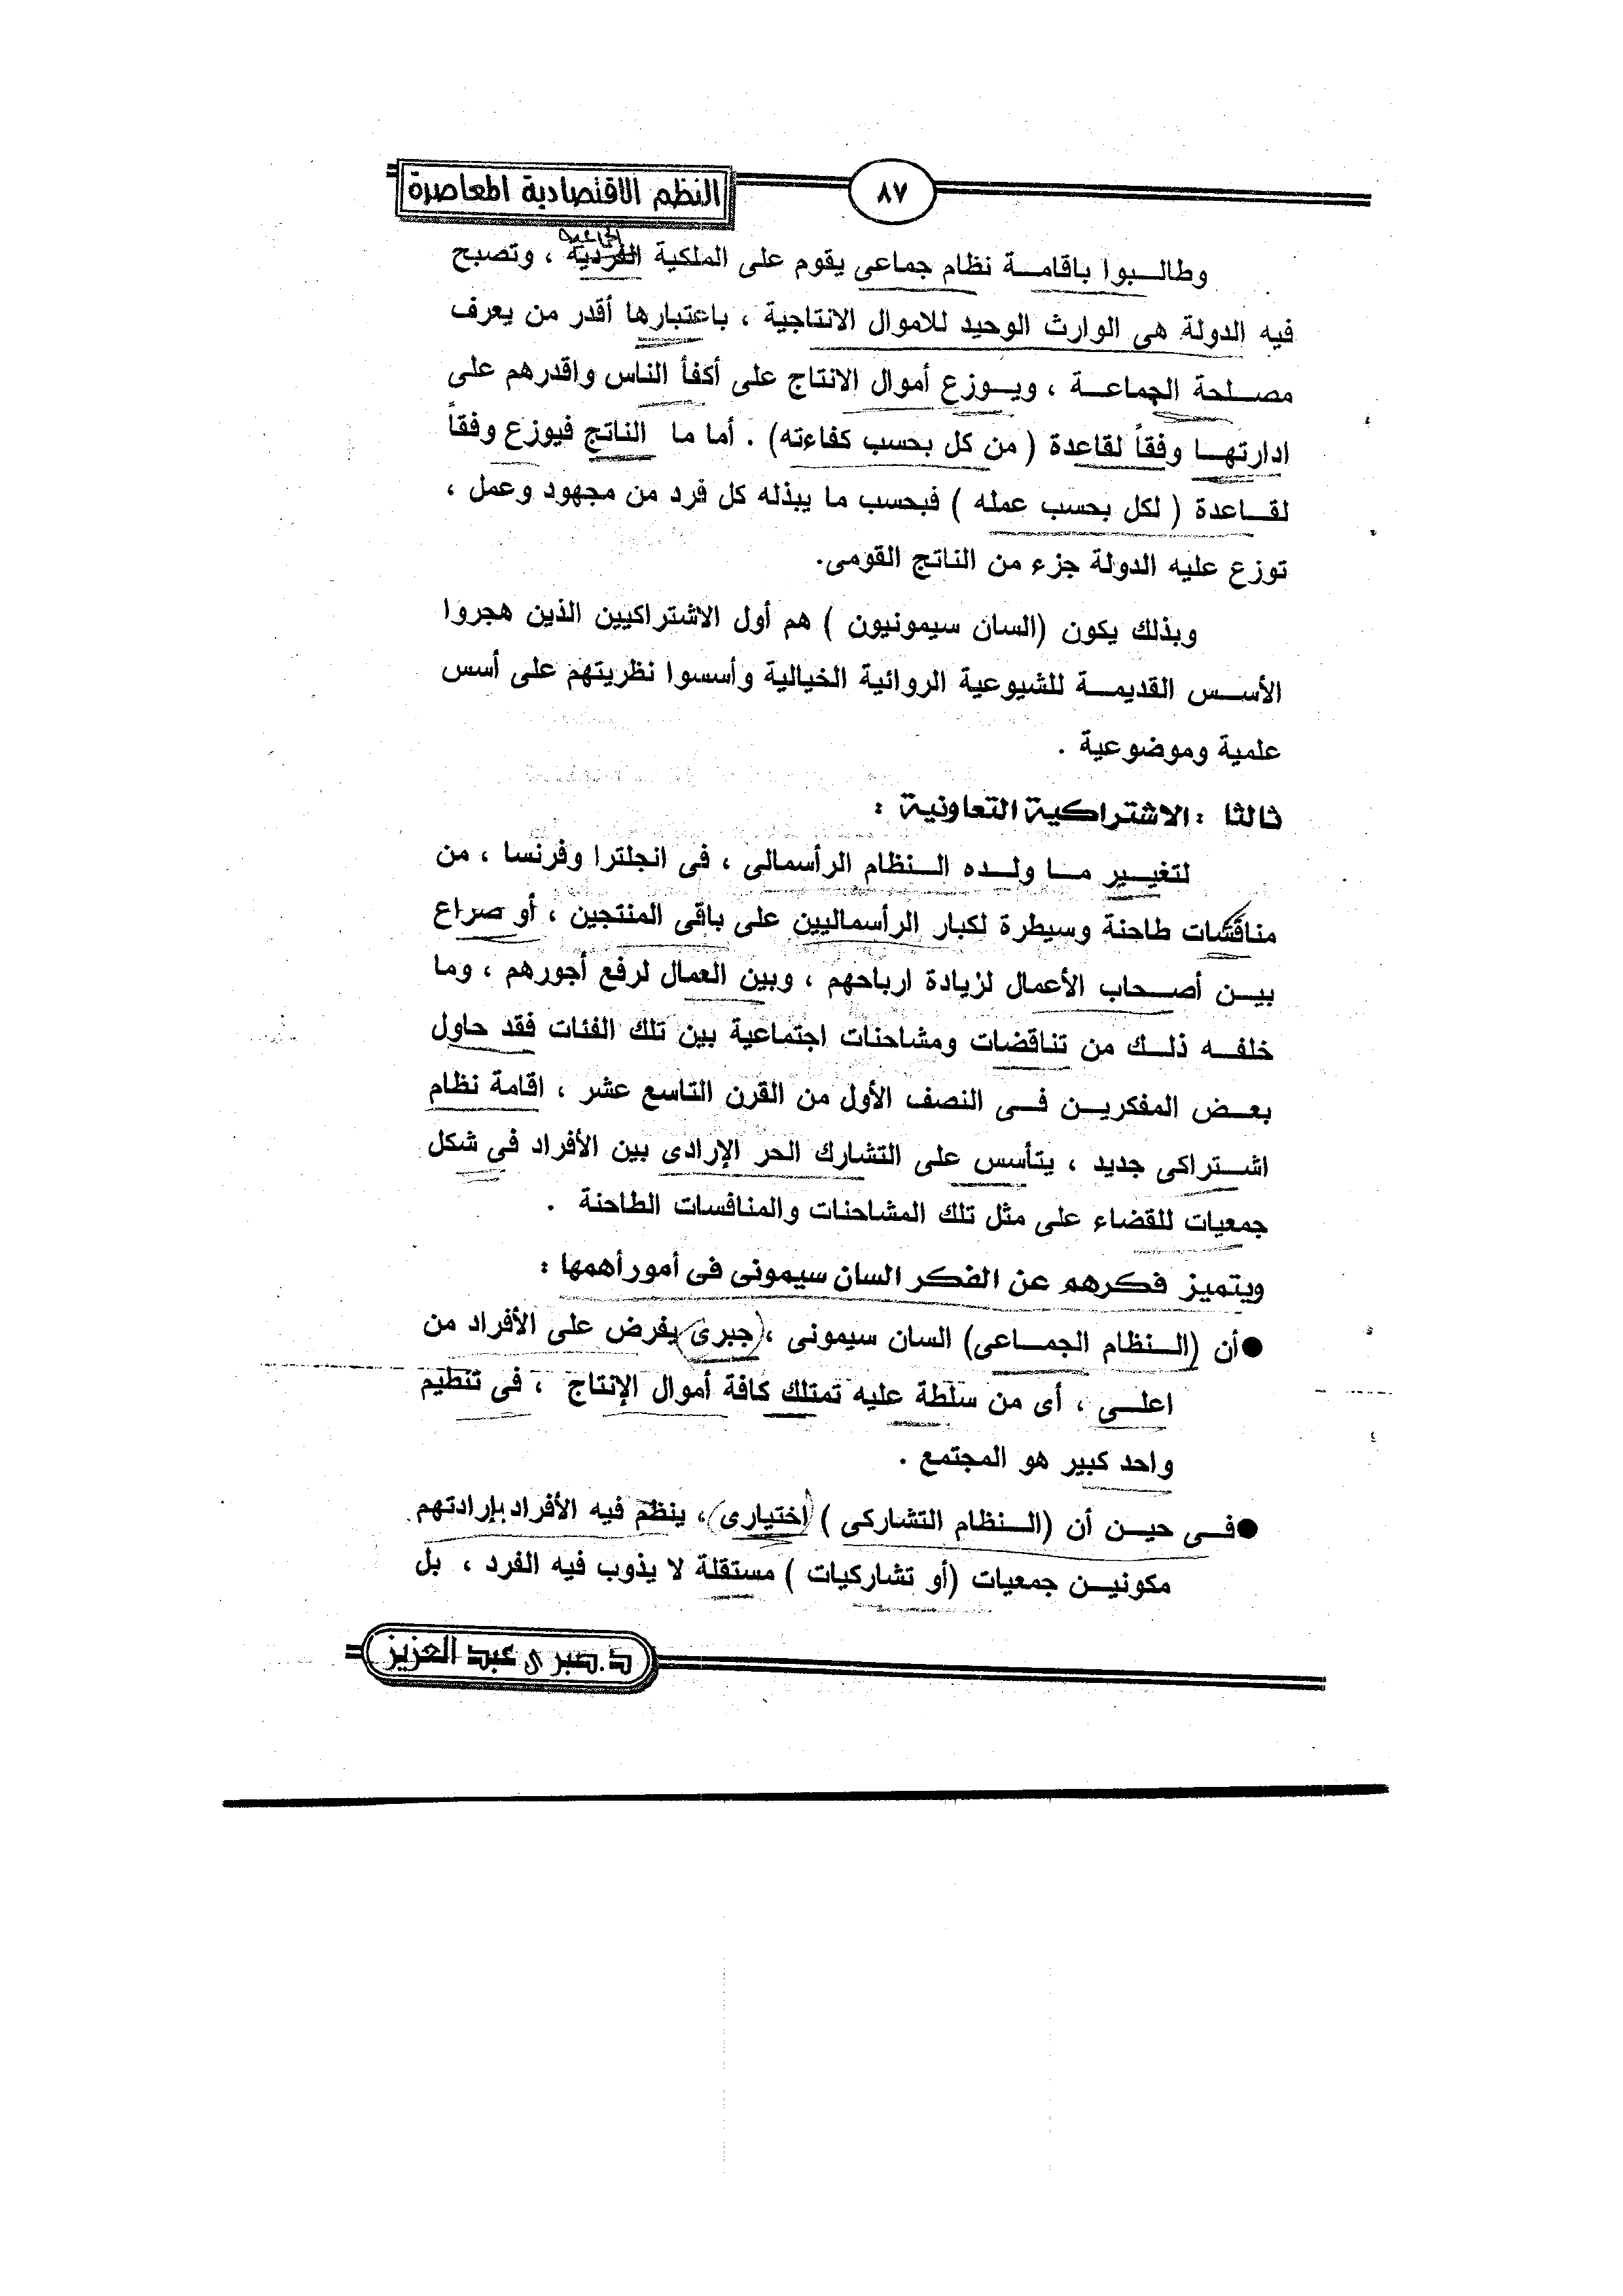 النظم الاقتصادية المعاصرة
٨٧
الجماعية
وطالبوا باقامة نظام جماعى يقوم على الملكية الفردية ، وتصبح
فيه الدولة هى الوارث الوحيد للاموال الانتاجية ، باعتبارها أقدر من يعرف
مصلحة الجماعة ، ويوزع أموال الانتاج على أكفأ الناس واقدرهم على
ادارتها وفقاً لقاعدة ( من كل بحسب كفاءته) . أما ما الناتج فيوزع وفقاً
لقاعدة ( لكل بحسب عمله ) فبحسب ما يبذله كل فرد من مجهود وعمل ،
توزع عليه الدولة جزء من الناتج القومى.
وبذلك يكون (السان سيمونيون ) هم أول الاشتراكيين الذين هجروا
الأسس القديمة للشيوعية الروائية الخيالية وأسسوا نظريتهم على أسس
علمية وموضوعية .
ثالثا : الاشتراكية التعاونية :
لتغيير ما ولده النظام الرأسمالى ، فى انجلترا وفرنسا ، من
مناقشات طاحنة وسيطرة لكبار الرأسماليين على باقى المنتجين ، أو صراع
بين أصحاب الأعمال لزيادة ارباحهم ، وبين العمال لرفع أجورهم ، وما
خلفه ذلك من تناقضات ومشاحنات اجتماعية بين تلك الفئات فقد حاول
بعض المفكرين فى النصف الأول من القرن التاسع عشر ، اقامة نظام
اشتراكى جديد ، يتأسس على التشارك الحر الإرادى بين الأفراد فى شكل
جمعيات للقضاء على مثل تلك المشاحنات والمنافسات الطاحنة .
ويتميز فكرهم عن الفكر السان سيمونى فى أمور أهمها :
● أن (النظام الجماعى) السان سيمونى ، (جبرى) يفرض على الأفراد من
اعلى ، أى من سلطة عليه تمتلك كافة أموال الإنتاج ، فى تنظيم
واحد كبير هو المجتمع .
● فى حين أن (النظام التشاركى ) (اختيارى) ، ينظم فيه الأفراد بإرادتهم
مكونين جمعيات (أو تشاركيات ) مستقلة لا يذوب فيه الفرد ، بل
د.صبرى عبد العزيز